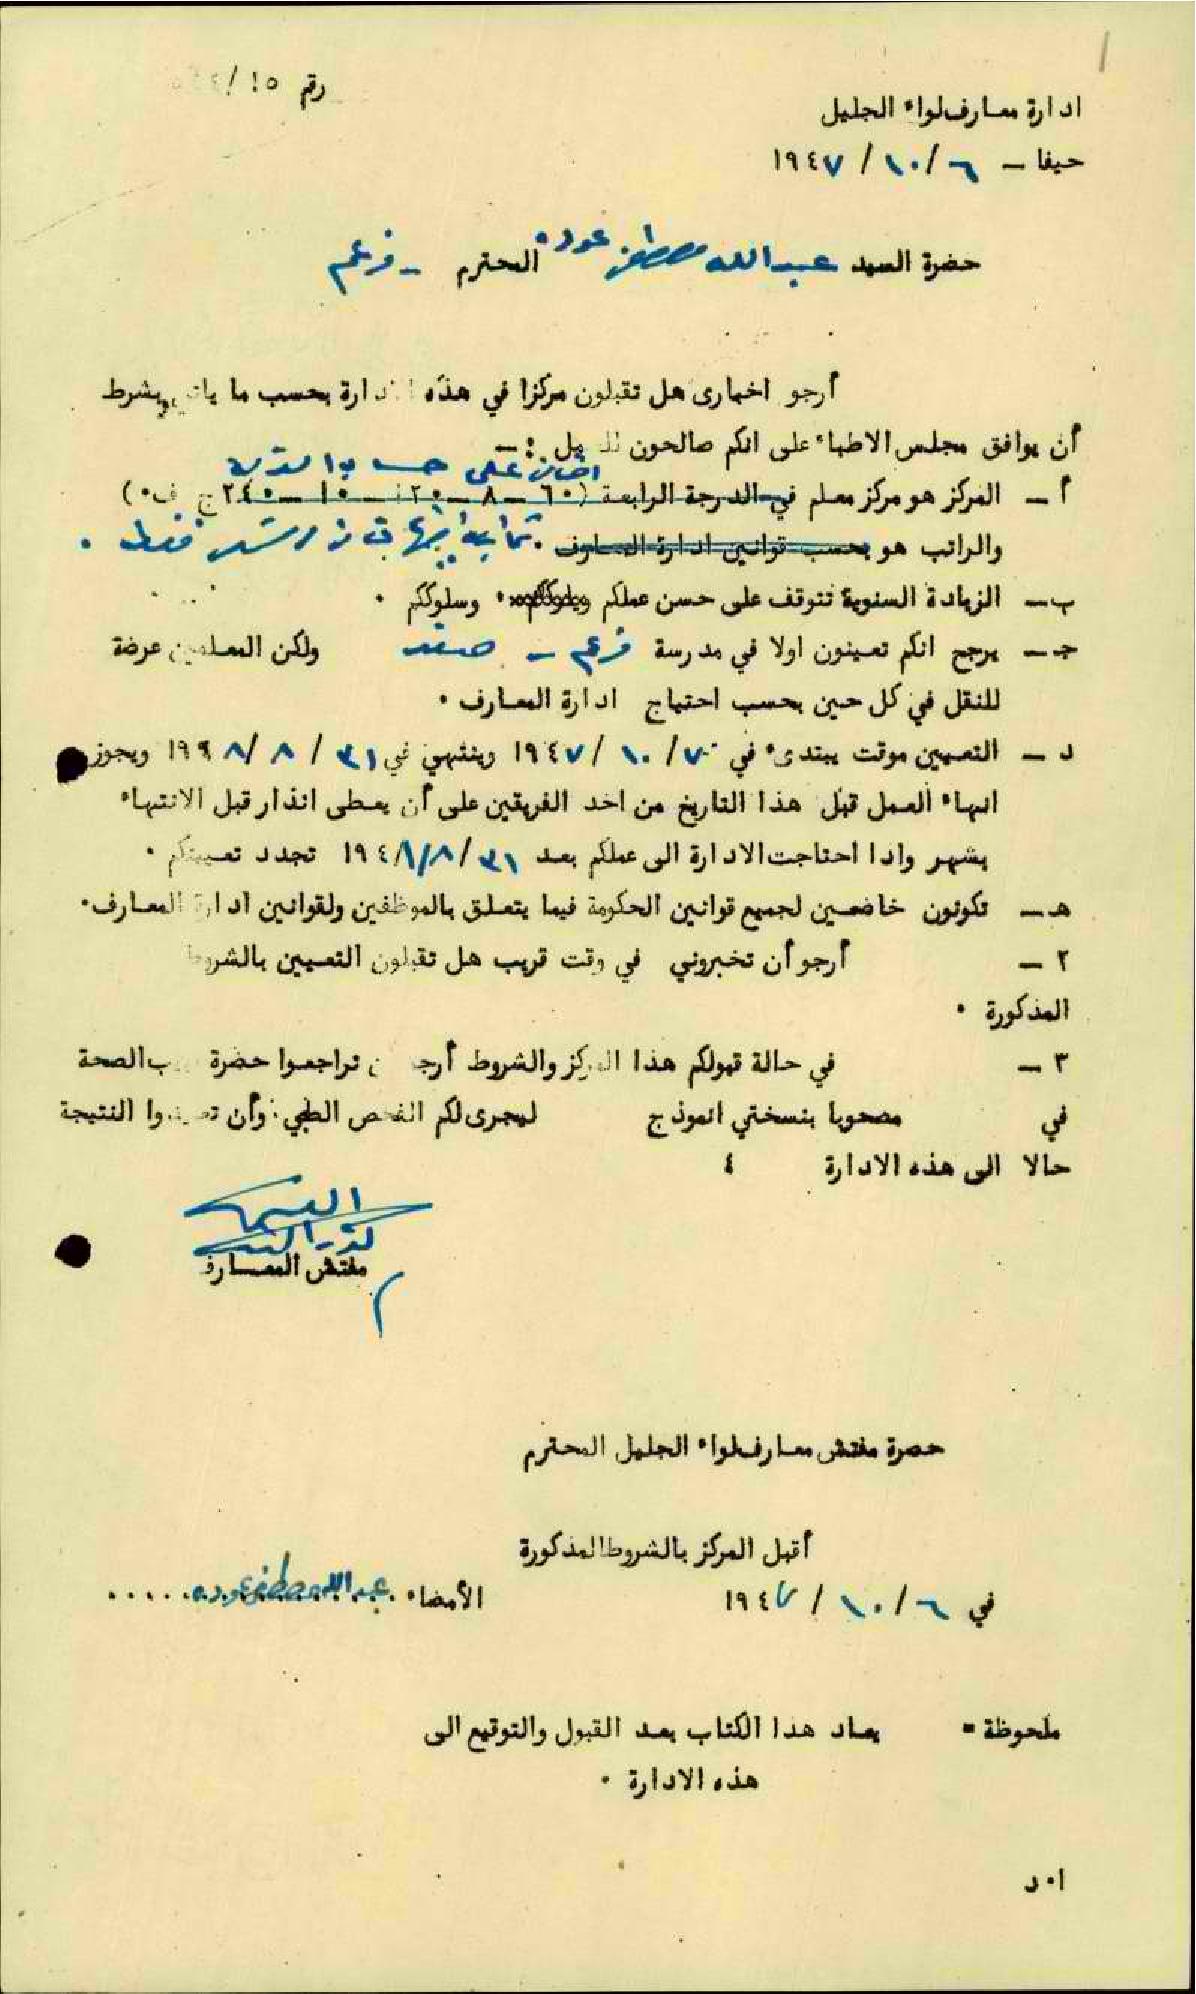 رقم ١٥/
ادارة معارف لواء الجليل
حيفا — ٦ / ١٠ / ١٩٤٧
حضرة السيد عبد الله مصطفى عوده المحترم - فرعم
أرجو اخباري هل تقبلون مركزا في هذه الادارة بحسب ما يأتي وبشرط
أن يوافق مجلس الاطباء على انكم صالحون للعمل : —
اضافي على حساب القرية
أ — المركز هو مركز معلم في الدرجة الرابعة (٦٠ — ٨ — ١٢٠ — ١٠ — ٢٤٠ ج ف٠)
والراتب هو بحسب قوانين ادارة المعارف ٠ فقط ٠
ب — الزيادة السنوية تتوقف على حسن عملكم وسلوككم ٠ وسلوككم ٠
جـ — يرجح انكم تعينون اولا في مدرسة فرعم - صفد ولكن المعلمين عرضة
للنقل في كل حين بحسب احتياج ادارة المعارف ٠
د — التعيين موقت يبتدىء في ٧ / ١٠ / ١٩٤٧ وينتهي في ٣١ / ٨ / ١٩٤٨ ويجوز
انهاء العمل قبل هذا التاريخ من احد الفريقين على أن يعطى انذار قبل الانتهاء
بشهر واذا احتاجت الادارة الى عملكم بعد ٣١ / ٨ / ١٩٤٨ تجدد تعيينكم ٠
هـ — تكونون خاضعين لجميع قوانين الحكومة فيما يتعلق بالموظفين ولقوانين ادارة المعارف ٠
٢ — أرجو أن تخبروني في وقت قريب هل تقبلون التعيين بالشروط
المذكورة ٠
٣ — في حالة قبولكم هذا المركز والشروط أرجو ان تراجعوا حضرة طبيب الصحة
في مصحوبا بنسختي انموذج ليجرى لكم الفحص الطبي وأن تعيدوا النتيجة
حالا الى هذه الادارة ٤
مفتش المعارف
حضرة مفتش معارف لواء الجليل المحترم
أقبل المركز بالشروط المذكورة
في ٦ / ١٠ / ١٩٤٧ الأمضاء عبد الله مصطفى عوده ٠٠٠٠٠
ملحوظة = يعاد هذا الكتاب بعد القبول والتوقيع الى
هذه الادارة ٠
ا٠د